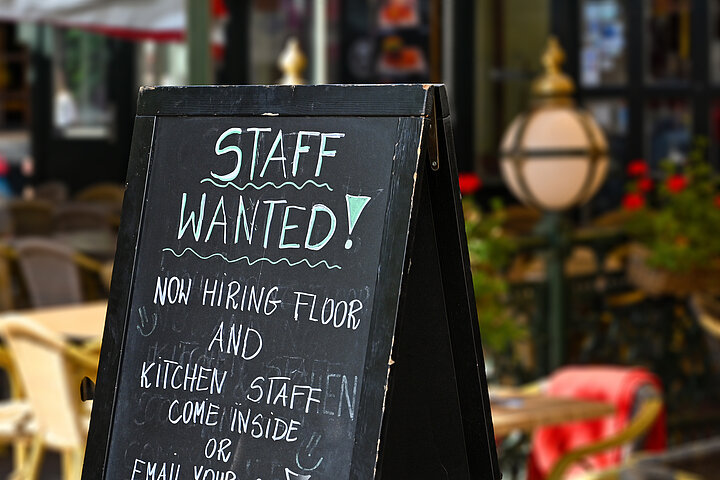 STAFF
WANTED!
NOW HIRING FLOOR
AND
KITCHEN STAFF
COME INSIDE
OR
EMAIL YOUR